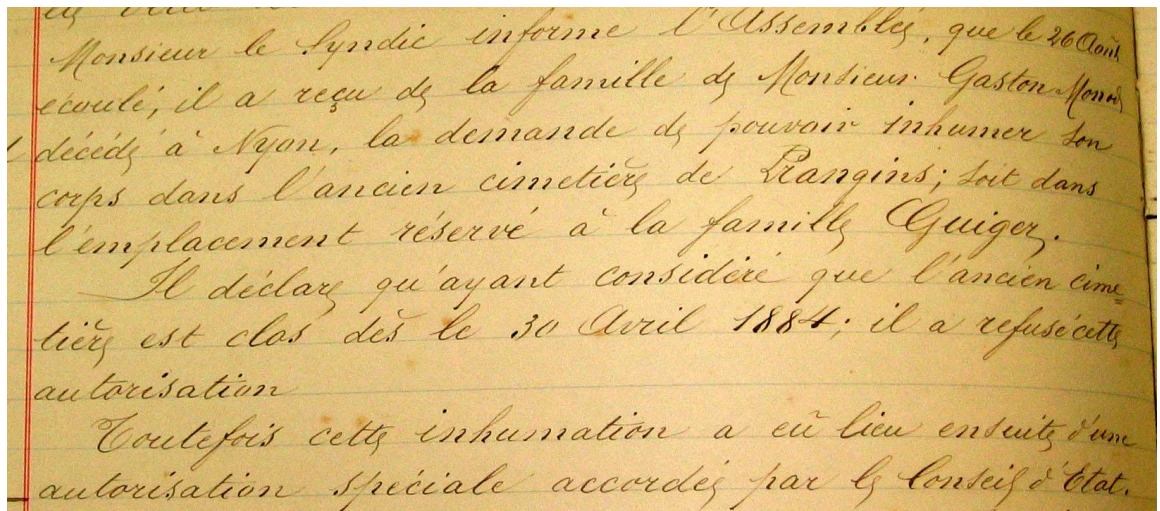 Monsieur le Syndic informe l'Assemblée, que le 26 Août
écoulé, il a reçu de la famille de Monsieur Gaston Monod
décédé à Nyon, la demande de pouvoir inhumer son
corps dans l'ancien cimetière de Prangins; soit dans
l'emplacement réservé à la famille Guiger.
Il déclare qu'ayant considéré que l'ancien cime=
tière est clos dès le 30 Avril 1884; il a refusé cette
autorisation
Toutefois cette inhumation a eû lieu ensuite d'une
autorisation spéciale accordée par le Conseil d'Etat.